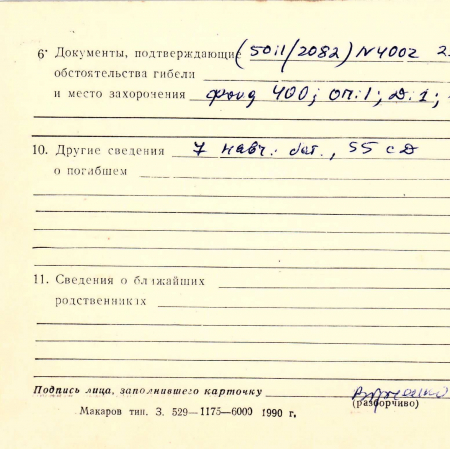 6· Документы, подтверждающие (50і1/2082) N4002
обстоятельства гибели
и место захоронения фонд 400; оп.1; д.1;
10. Другие сведения 7 навч. бат., 55 сд
о погибшем
11. Сведения о ближайших
родственниках
Подпись лица, заполнившего карточку
(разборчиво)
Макаров тип. З. 529—1175—6000 1990 г,